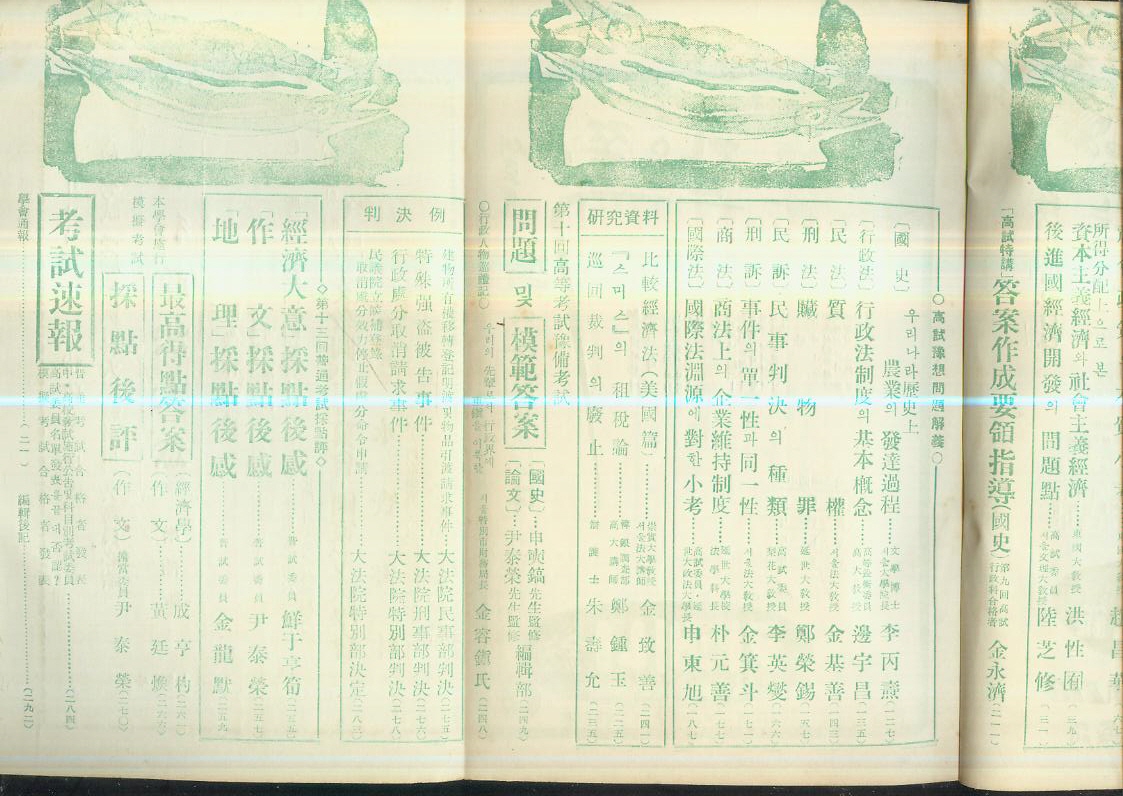 所得分配上으로 본
資本主義經濟와 社會主義經濟 東國大教授 洪性囿 (三九)
後進國經濟開發의 問題點 高試委員 서울文理大教授 陸芝修 (三一)
「高試特講」答案作成要領指導(國史) 第九回高試行政科合格者 金永濟 (二一一)
○高試豫想問題解義○
〔國史〕 우리나라歷史上 農業의 發達過程 文學博士 서울大學院長 李丙燾 (一二七)
〔行政法〕 行政法制度의 基本概念 高等試驗委員 高大教授 邊宇昌 (一三五)
〔民法〕 質權 高試委員 서울法大教授 金基善 (一四三)
〔刑法〕 贓物罪 延世大教授 鄭榮錫 (一五七)
〔民訴〕 民事判決의 種類 高試委員 梨花大教授 李英燮 (一六六)
〔刑訴〕 事件의 單一性과 同一性 서울法大教授 金箕斗 (一七一)
〔商法〕 商法上의 企業維持制度 延世大學院 法學科長 朴元善 (一七七)
〔國際法〕 國際法淵源에 對한 小考 高試委員・延世大政法大學長 申東旭 (一八七)
研究資料
比較經濟法(美國篇) 崇實大學教授 서울法大講師 金致善 (二四一)
『스미스』의 租稅論 韓銀調査部 高大講師 鄭鍾玉 (二二五)
巡回裁判의 廢止 辯護士 朱壽允 (二三五)
第十回高等考試豫備考試
問題 및 模範答案 〔國史〕…申奭鎬先生監修 〔論文〕…尹泰榮先生監修 編輯部 (二四九)
○行政人物巡禮記○ 우리의 先輩로서 行政界에 서울特別市財務局長 金容 氏 (二四八)
判決例
建物所有權移轉登記明渡果物品引渡請求事件 大法院民事部判決 (二七五)
特殊强盜被告事件 大法院刑事部判決 (二七六)
行政處分取消請求事件 大法院特別部判決 (二七八)
民議院立候補登錄取消處分效力停止假處分命令申請 大法院特別部決定 (二八三)
◇第十三回普通考試採點評◇
「經濟大意」採點後感 普試委員 鮮于亨筍 (二五五)
「作文」採點後感 普試委員 尹泰榮 (二五七)
「地理」採點後感 普試委員 金龍默 (二五九)
本學會施行模擬考試
最高得點答案 (經濟學) 成亨杓 (二六二)
(作文) 黃廷煥 (二六六)
採點後評 (作文) 尹泰榮 (二七〇)
考試速報
普通考試合格者發表
模擬考試合格者發表 (二八四)
學會通報 (二一) 編輯後記 (二九二)